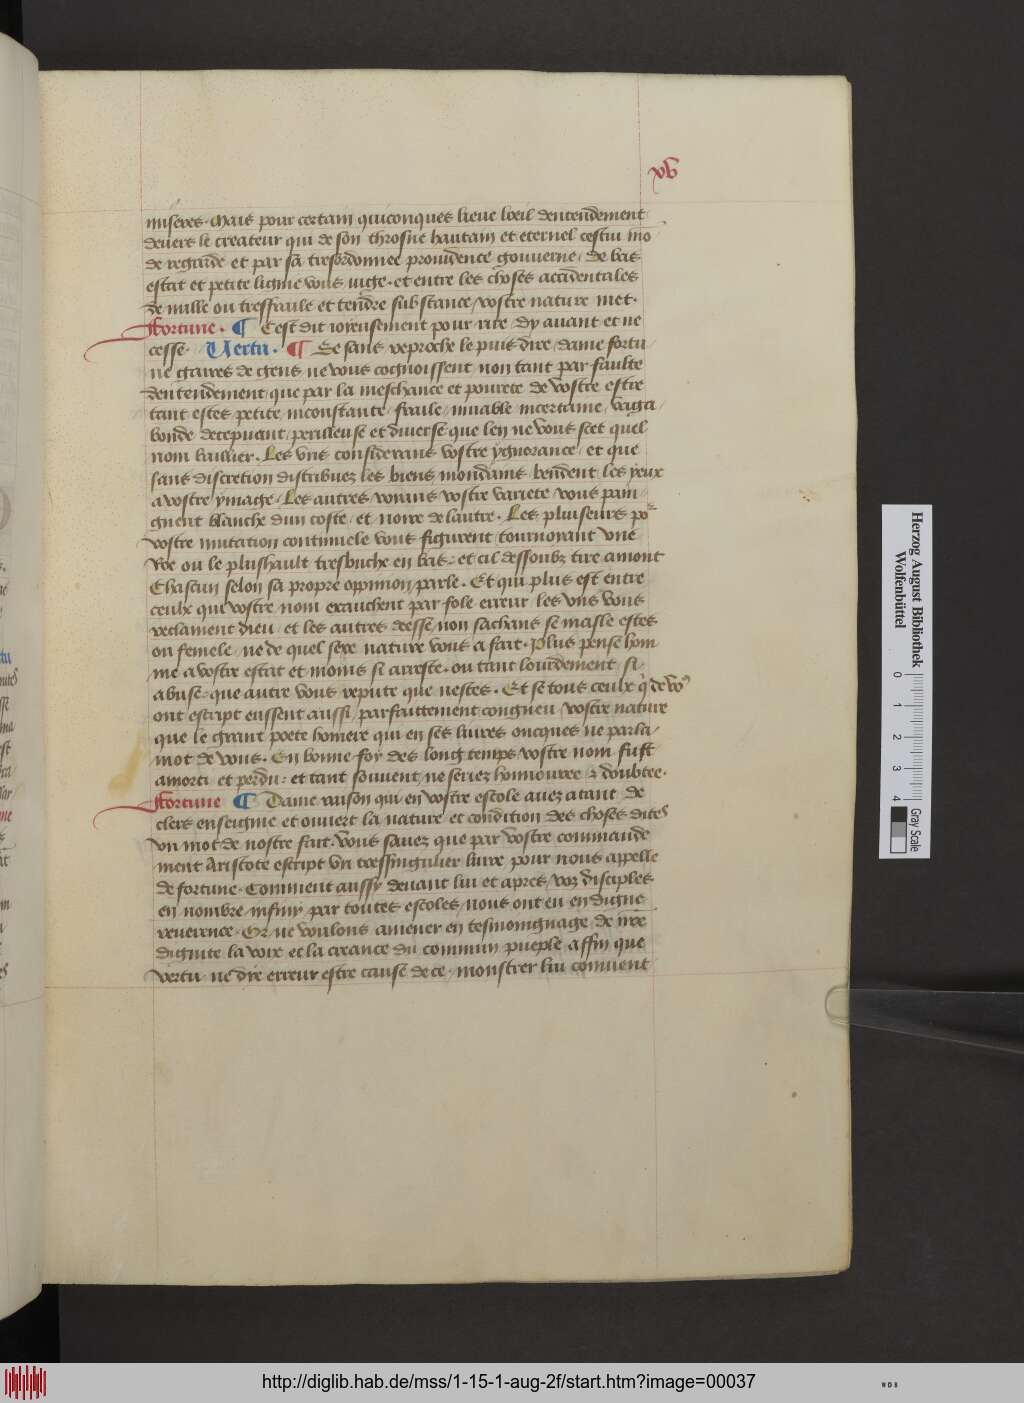 xv
miseres. Mais pour certain quiconques lieve loeil dentendement
devers le createur qui de son throsne haultain et eternel cestui mo
de regarde et par sa tresordonnee providence gouverne. de bas
estat et petite ligne vous iuge. et entre les choses accidentales
de nulle ou tresfraile et tendre substance vostre nature met.
Fortune. ¶ Cest dit ioyeusement pour rire dy avant et ne
cesse. Vertu. ¶ Se sans reproche le puis dire dame fortu
ne gaires de gens ne vous cognoissent non tant par faulte
dentendement que par la meschance et povrete de vostre estre
tant estes petite inconstante fraile muable incertaine vaga
bonde decepvant perilleuse et diverse que len ne vous scet quel
nom baillier. Les uns considerans vostre ygnorance et que
sans discretion distribuez les biens mondains bendent les yeux
a vostre ymage. Les autres voians vostre variete vous pain
gnent blanche dun coste et noire de lautre. Les pluiseurs po
vostre mutation continuele vous figurent tournoyant une
roe ou le plushault tresbuche en bas. et cil dessoubz tire amont
Chascun selon sa propre oppinion parle. Et qui plus est entre
ceulx qui vostre nom exauchent par fole erreur les uns vous
reclament dieu et les autres deesse non sachans se masle estes
ou femele ne de quel sexe nature vous a fait. Plus pense hom
me a vostre estat et moins si arreste. ou tant lourdement si
abuse que autre vous repute que nestes. Et se tous ceulx q de vo
ont escript eussent aussi parfaittement congneu vostre nature
que le grant poete homere qui en ses livres oncques ne parla
mot de vous. En bonne foy des long temps vostre nom fust
amorti et perdu: et tant souvent ne seriez honnouree & doubtee.
Fortune ¶ Dame raison qui en vostre escole avez a tant de
clers enseignie et ouvert la nature et condition des choses dites
un mot de nostre fait. Vous savez que par vostre commande
ment Aristote escript un tressingulier livre pour nous appelle
de fortune. Comment aussy devant lui et apres voz disciples
en nombre infiny par toutes escoles nous ont eu en digne
reverence. Or ne voulons amener en tesmoingnage de nre
dignite la voix et la creance du commun pueple affin que
vertu ne die erreur estre cause de ce. monstrer lui convient
Herzog August Bibliothek
Wolfenbüttel
0 1 2 3 4
Gray Scale
http://diglib.hab.de/mss/1-15-1-aug-2f/start.htm?image=00037